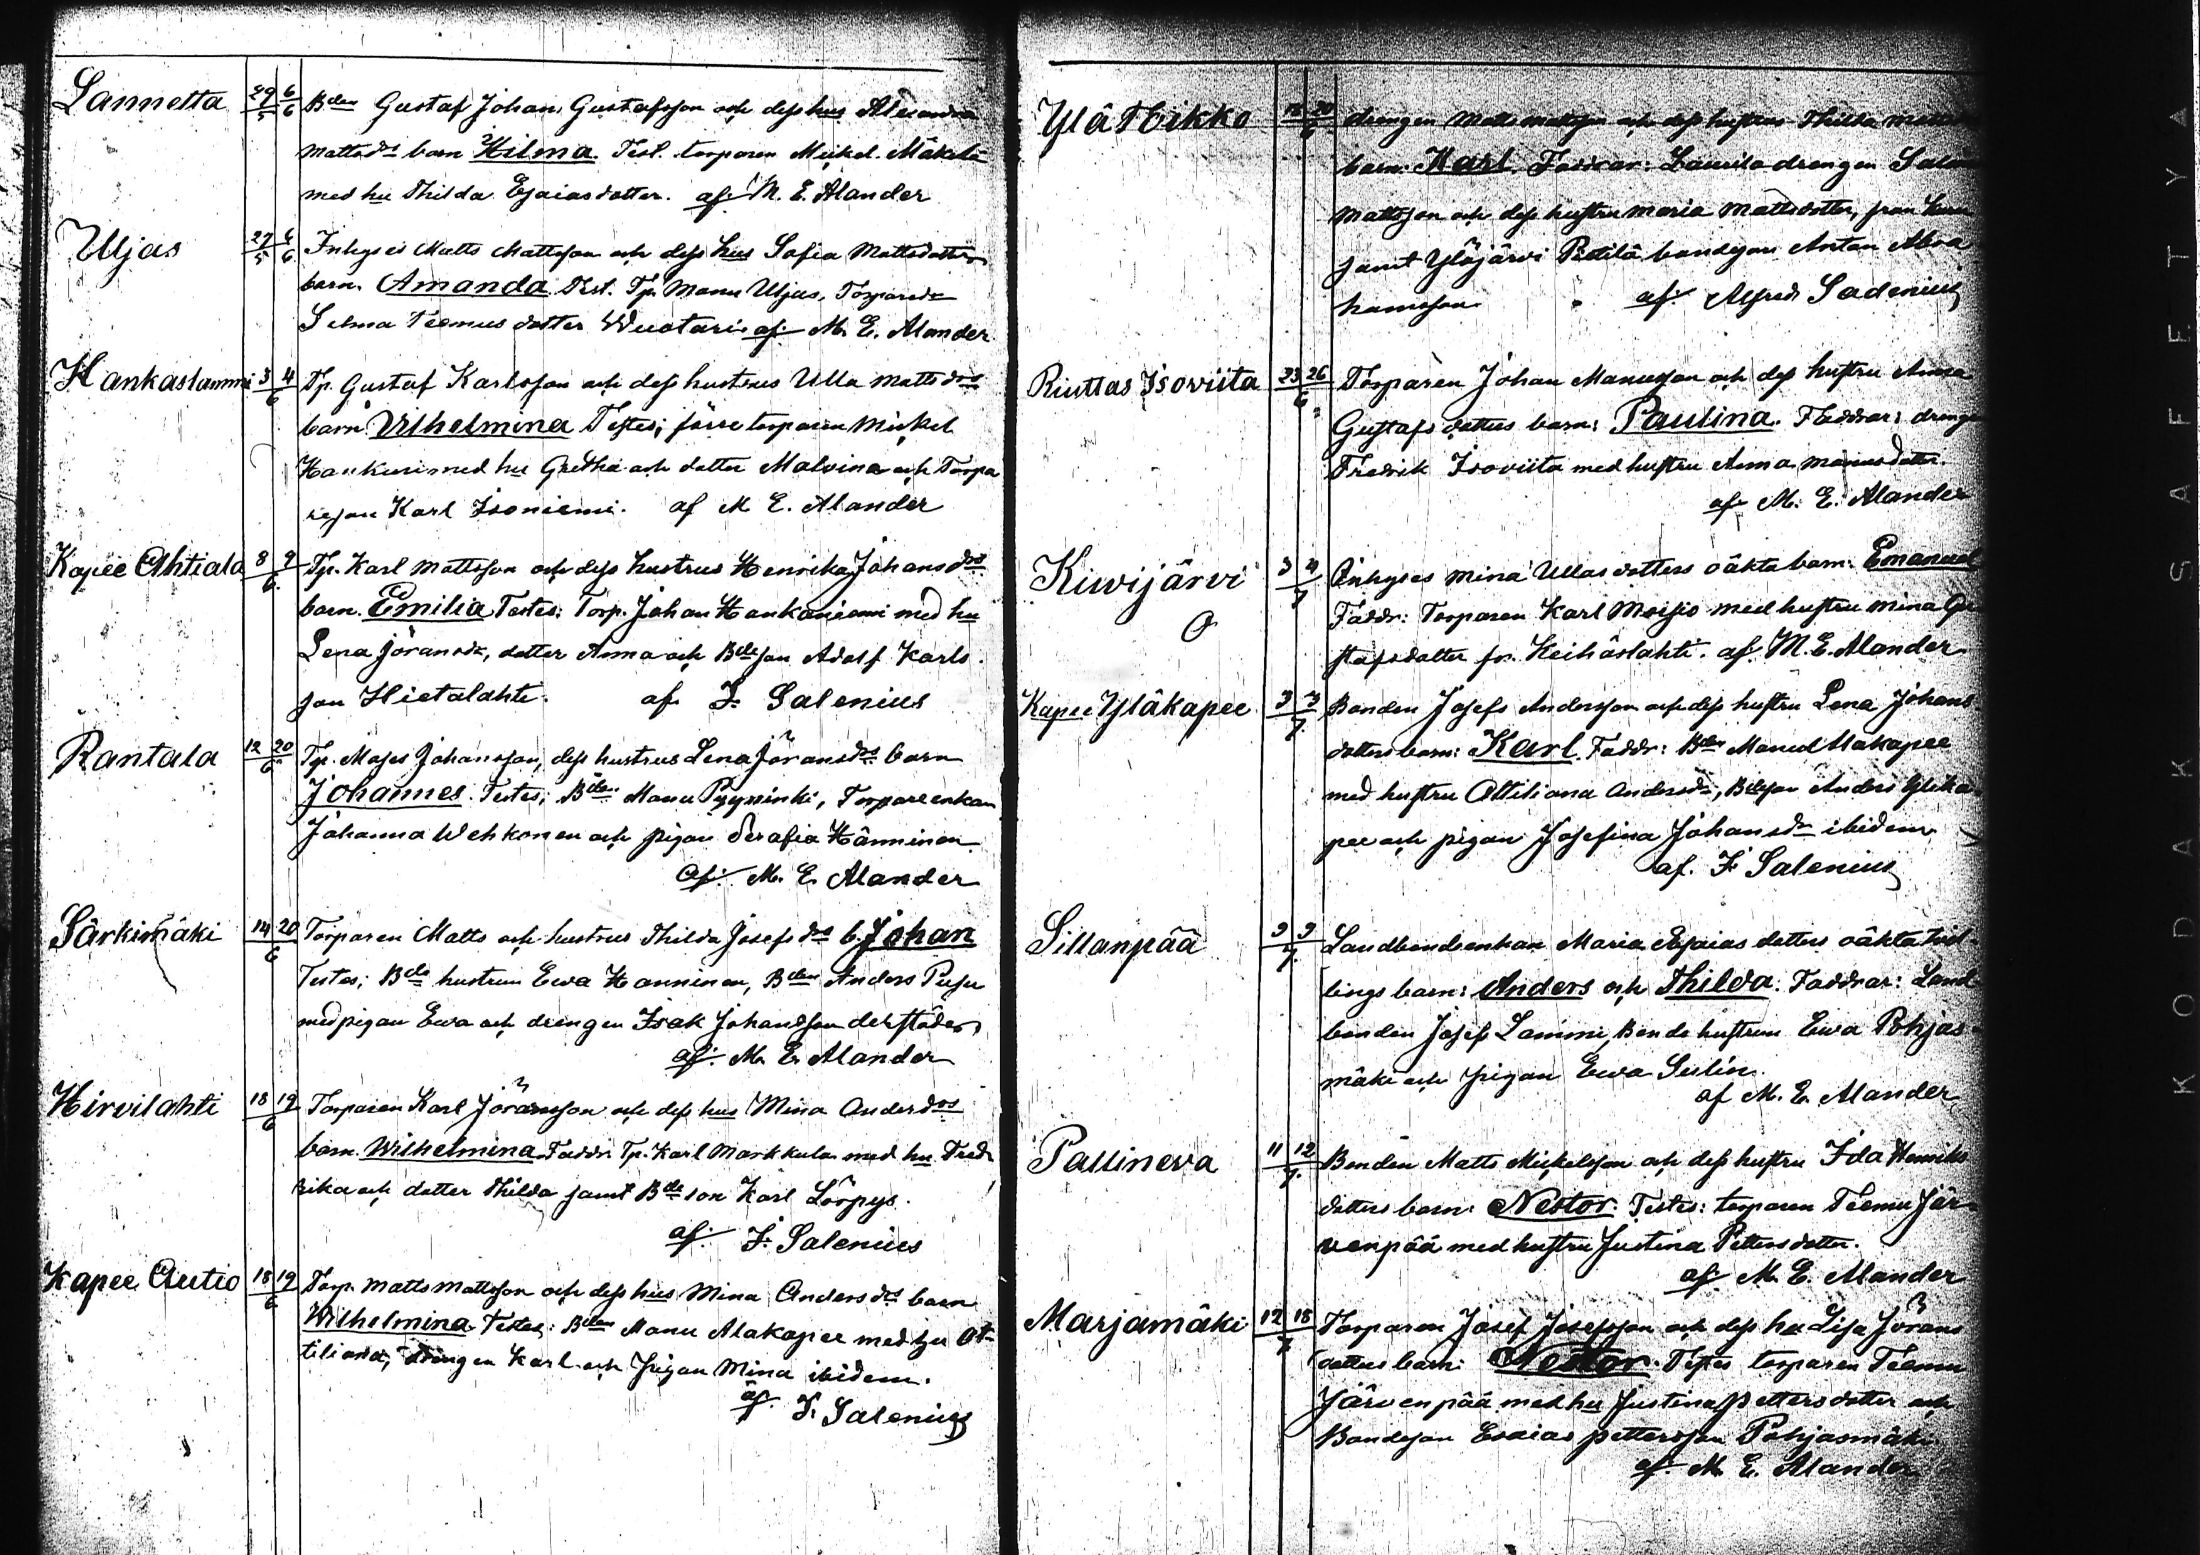 Lannetta 29/5 6/6 Bden Gustaf Johan Gustafsson och dess hus Alexandra
Mattsds barn Hilma. Test. torparen Mickel Mäkelä
med hu Thilda Esaiasdotter. af M. E. Alander
Uljas 27/5 6/6 Inhyses Matts Mattsson och dess hus Sofia Mattsdotters
barn. Amanda Test. Tp. Manu Uljas, Torpareds
Selma Teemusdotter Wuotari af M. E. Alander
Hankaslammi 3 4/6 Tp. Gustaf Karlsson och dess hustrus Ulla Mattsdrs
barn Vilhelmina Testes; förre torparen Mickel
med hu Gretha och dotter Malvina och Torpa
reson Karl Isoniemi. af M E. Alander
Kapee Ahtiala 8 9/6 Tp. Karl Mattsson och dess hustrus Henrika Johansdrs
barn. Emilia Testes: Torp. Johan Hankaniemi med hu
Lena Jöransdr, dotter Anna och Bdeson Adolf Karls
son Hietalahti. af F. Salenius
Rantala 12 20/6 Tp. Moses Johansson, dess hustrus Lena Jöransdrs barn
Johannes. Testes; Bden Manu Pyysinki, Torpareenkan
Johanna Wehkonen och pigan Serafia Hänninen
af. M. E. Alander
Särkimäki 14 20/6 Torparen Matts och hustrus Thilda Josefsdrs b. Johan
Testes; Bde hustrun Ewa Hanninen, Bden Anders Pusu
med pigan Ewa och drengen Isak Johansson derstädes
af. M. E. Alander
Hirvilahti 18 19/6 Torparen Karl Jöransson och dess hus Mina Andersdrs
barn. Wilhelmina Faddr. Tp. Karl Markkula med hu Fred
rika och dotter Thilda samt Bde son Karl Lörpys.
af. F. Salenius
Kapee Autio 18 19/6 Torp. Matts Mattsson och dess hus Mina Andersdrs barn
Wilhelmina Testes: Bden Manu Alakapee med hu Ot
tiliana, drengen Karl och Pigan Mina ibidem.
af. F. Salenius
Ylä Hikko 18 20/6 drengen Matts Mattsson och dess hustrus Thilda
barn: Karl. Faddrar: Laurila drengen
Mattsson och dess hustru Maria Mattsdotter, från
samt Ylöjärvi bondeson Anton Abra
hamsson af Alfred Sadenius
Riuttas Isoviita 23 26/6 Torparen Johan Manusson och dess hustru Anna
Gustafsdotters barn: Paulina. Faddrar: drengen
Fredrik Isoviita med hustru Anna Manusdotter.
af M. E. Alander
Kiwijärvi 3 4/7 Inhyses Mina Ullasdotters oäkta barn: Emanuel
O Faddr: Torparen Karl Moisio med hustru Mina Gu
stafsdotter fr. Keihäslahti. af. M. E. Alander
Kapee Yläkapee 3 3/7 Bonden Josefs Andersson och dess hustru Lena Johans
dotters barn: Karl. Faddr: Bden Manuel Alakapee
med hustru Ottiliana Andersdr, Bdeson Anders Yläka
pee och pigan Josefina Johansdr ibidem
af. F Salenius
Sillanpää 9 9/7 Landbondeenkan Maria Esaias dotters oäkta tvil
lings barn: Anders och Thilda. Faddrar: Land
bonden Josef Lammi, Bonde hustrun Ewa Pohjas
mäki och pigan Ewa Sulin.
af M. E. Alander
Pallineva 11 12/7 Bonden Matts Mickelsson och dess hustru Ida Henriks
dotters barn: Nestor. Testes: torparen Teemu Jär
venpää med hustru Justina Petters dotter.
af M. E. Alander
Marjamäki 12 18/7 Torparen Josef Josefsson och dess hu Lisa Jörans
dotters barn: Nestor. Testes torparen Teemu
Järvenpää med hu Justina Pettersdotter och
Bondeson Esaias Pettersson Pohjasmäki
af. M. E. Alander
KODAK SAFETY A